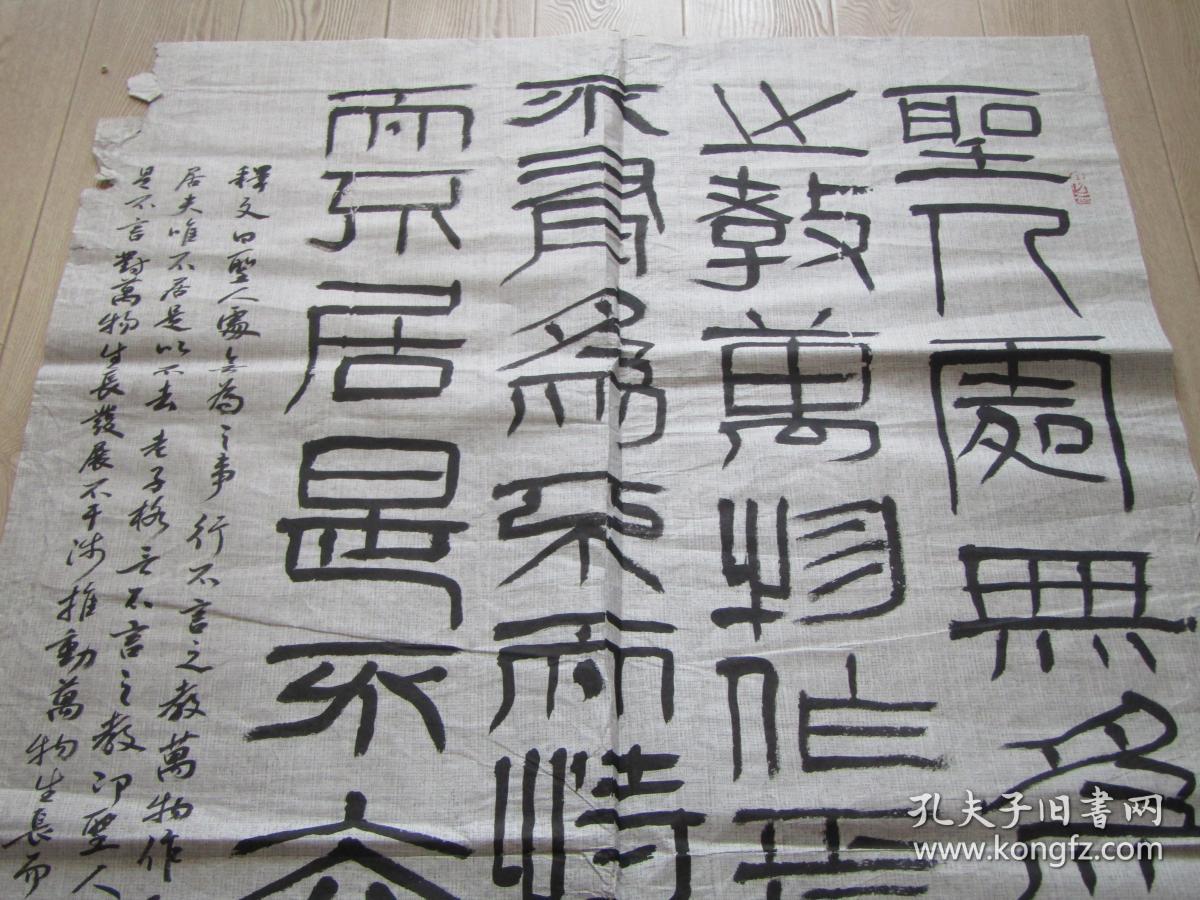 聖人處無為
之教萬物作焉
不有為而不恃
而不居是以不去
釋文曰聖人處無為之事行不言之教萬物作
居夫唯不居是以不去老子格言不言之教即聖人
是不言對萬物生長發展不干涉推動萬物生長而
孔夫子旧書网
www.kongfz.com